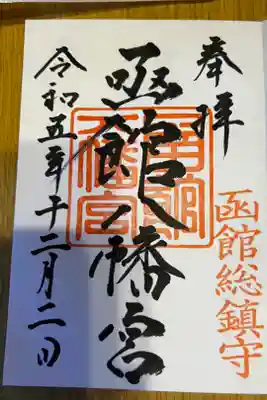 奉拝
函館総鎮守
函館八幡宮
函館八幡宮
令和五年十二月二日